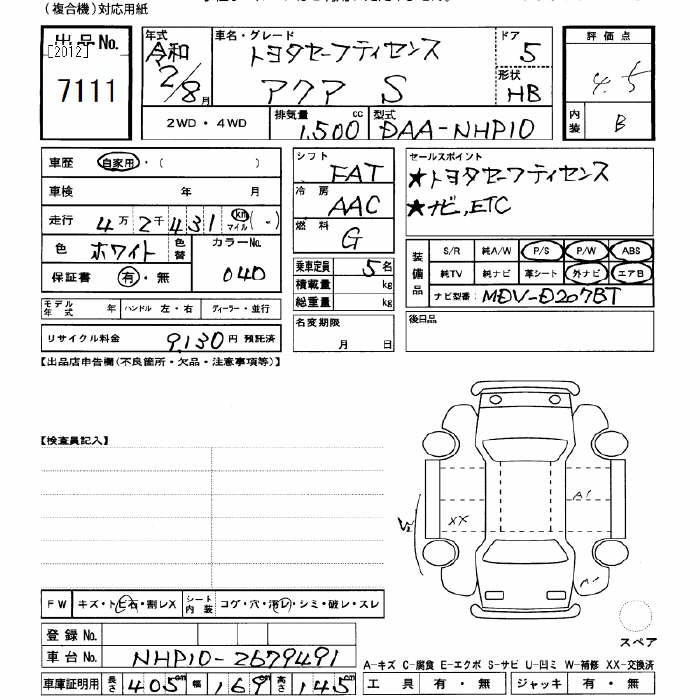 (複合機)対応用紙
出品No.
[2012]
7111
年式 令和 2/8月
車名・グレード トヨタセーフティセンス
アクア S
ドア 5
形状 HB
評価点
4.5
内装 B
2WD・4WD
排気量 1,500 cc
型式 DAA-NHP10
車歴 自家用・( )
車検 年 月
走行 4万2千431 km マイル( - )
色 ホワイト 色替 カラーNo. 040
保証書 有・無
シフト FAT
冷房 AAC
燃料 G
乗車定員 5名
積載量 kg
総重量 kg
セールスポイント
★トヨタセーフティセンス
★ナビ,ETC
装備品 S/R 純A/W P/S P/W ABS
純TV 純ナビ 革シート 外ナビ エアB
ナビ型番: MDV-D207BT
モデル年式 年 ハンドル 左・右 ディーラー・並行
リサイクル料金 9,130円 預託済
名変期限 月 日
後日品
【出品店申告欄(不良箇所・欠品・注意事項等)】
【検査員記入】
XX
A1
W
FW キズ・トビ石・割レX シート内装 コゲ・穴・汚レ・シミ・破レ・スレ
スペア
登録No.
車台No. NHP10-2679491
車庫証明用 長さ 405cm 幅 169cm 高さ 145cm
A-キズ C-腐食 E-エクボ S-サビ U-凹ミ W-補修 XX-交換済
工具 有・無 ジャッキ 有・無